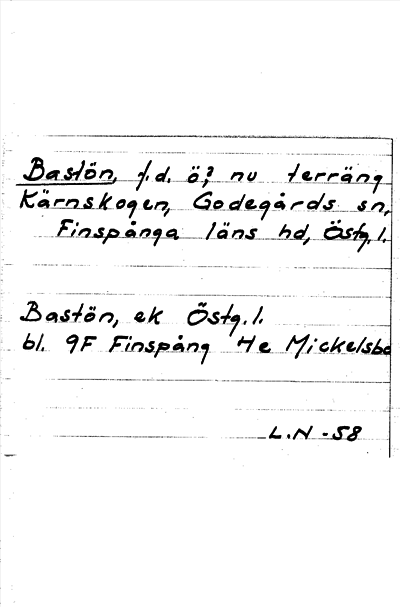 Bastön, f.d. ö? nu terräng
Kärnskogen, Godegårds sn,
Finspånga läns hd, Östg.l.
Bastön, ek Östg.l.
bl. 9F Finspång 4e Mickelsbo
L.N -58